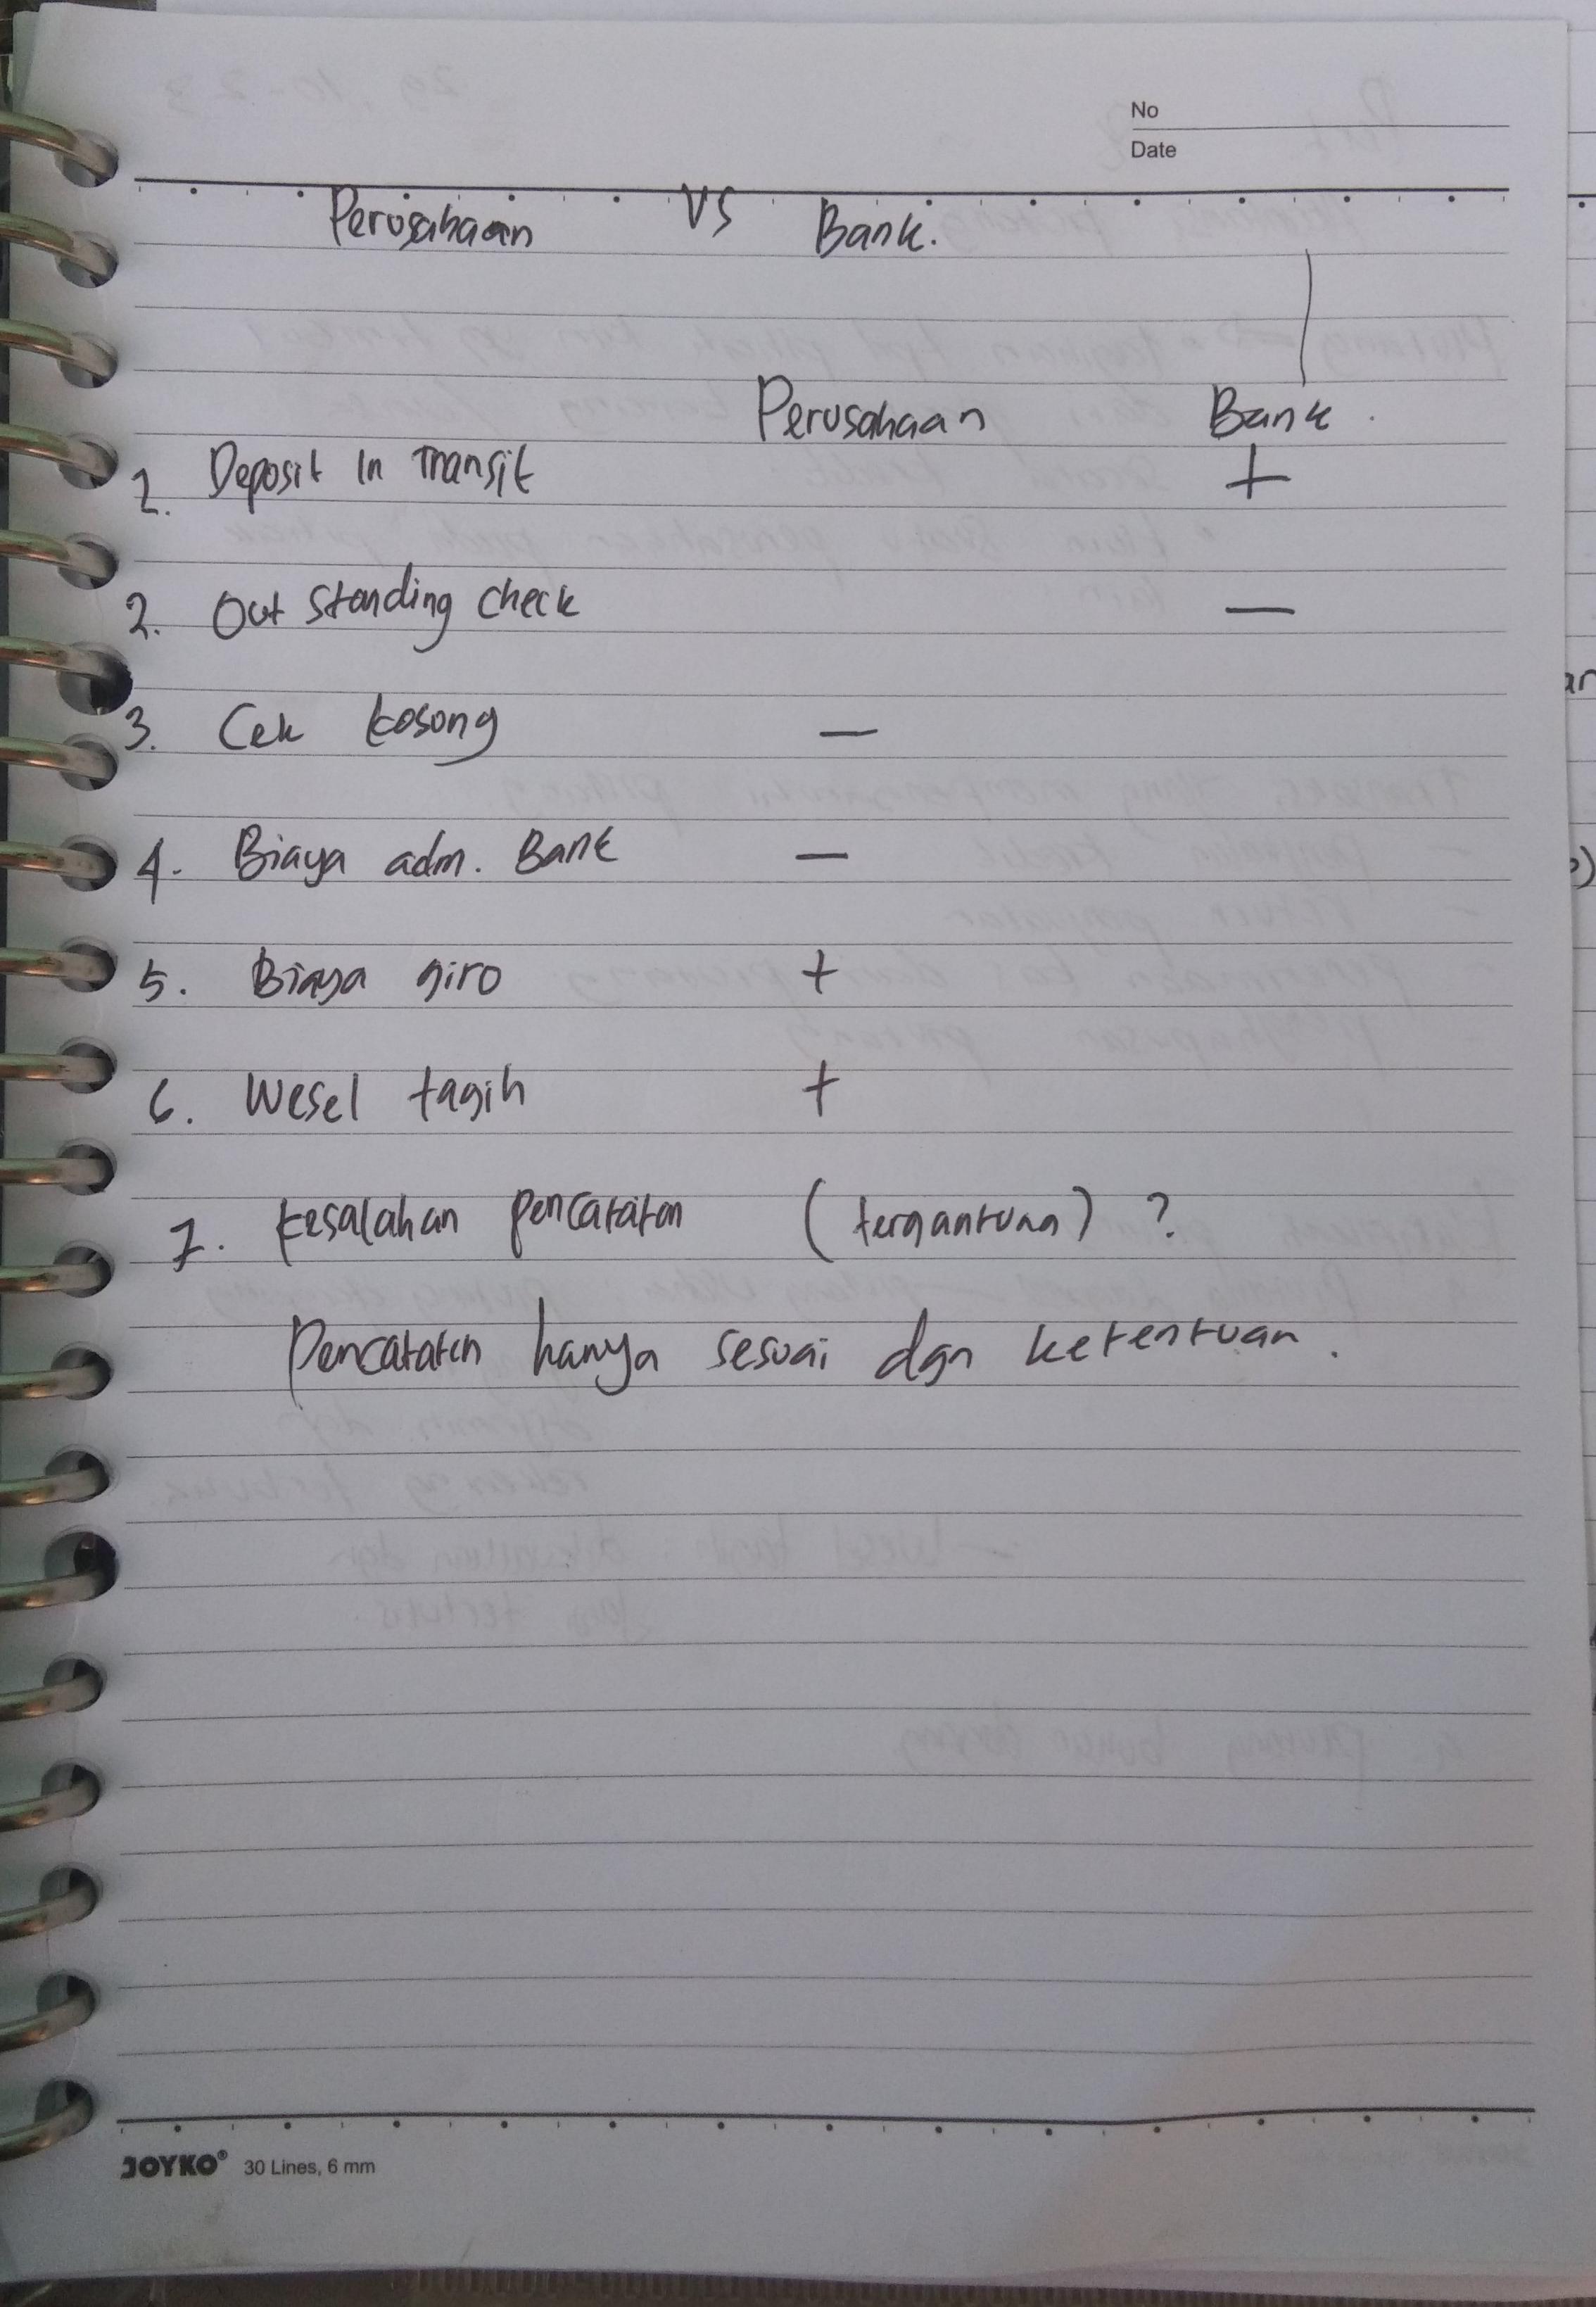 No
Date
Perusahaan VS Bank.
Perusahaan Bank.
1. Deposit In Transit +
2. Out Standing check —
3. Cek kosong —
4. Biaya adm. Bank —
5. Biaya giro +
6. Wesel tagih +
7. kesalahan pencatatan (tergantung) ?
Pencatatan hanya sesuai dgn ketentuan.
JOYKO® 30 Lines, 6 mm